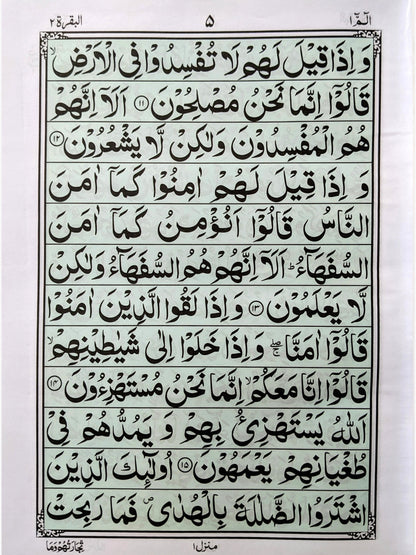 البقرة ٢ ٥ الٓمّٓ ١
وَ اِذَا قِيْلَ لَهُمْ لَا تُفْسِدُوْا فِي الْاَرْضِۙ
قَالُوْۤا اِنَّمَا نَحْنُ مُصْلِحُوْنَ ۝۱۱ اَلَاۤ اِنَّهُمْ
هُمُ الْمُفْسِدُوْنَ وَلٰكِنْ لَّا يَشْعُرُوْنَ ۝۱۲
وَ اِذَا قِيْلَ لَهُمْ اٰمِنُوْا كَمَاۤ اٰمَنَ
النَّاسُ قَالُوْۤا اَنُؤْمِنُ كَمَاۤ اٰمَنَ
السُّفَهَآءُؕ اَلَاۤ اِنَّهُمْ هُمُ السُّفَهَآءُ وَلٰكِنْ
لَّا يَعْلَمُوْنَ ۝۱۳ وَاِذَا لَقُوا الَّذِيْنَ اٰمَنُوْا
قَالُوْۤا اٰمَنَّا ۖۚ وَاِذَا خَلَوْا اِلٰى شَيٰطِيْنِهِمْۙ
قَالُوْۤا اِنَّا مَعَكُمْۙ اِنَّمَا نَحْنُ مُسْتَهْزِءُوْنَ ۝۱۴
اَللّٰهُ يَسْتَهْزِئُ بِهِمْ وَ يَمُدُّهُمْ فِيْ
طُغْيَانِهِمْ يَعْمَهُوْنَ ۝۱۵ اُولٰٓئِكَ الَّذِيْنَ
اشْتَرَوُا الضَّلٰلَةَ بِالْهُدٰى۪ فَمَا رَبِحَتْ
منزل ١